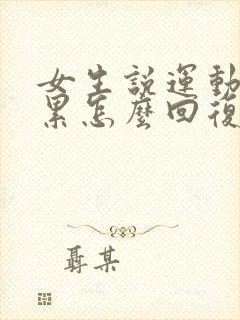 女生説運動
累怎麼回復
聶某